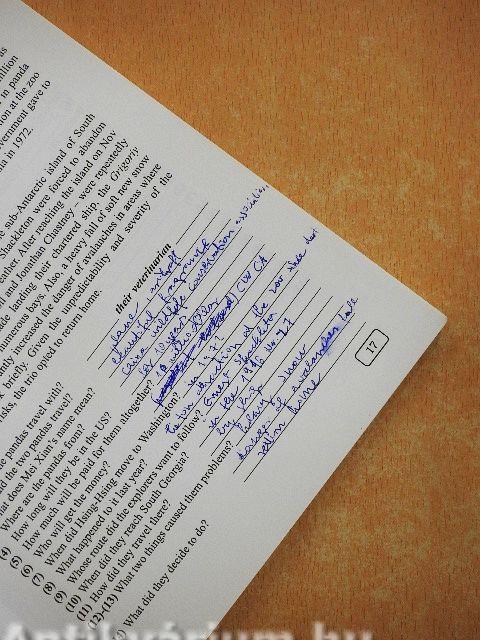 as
million
in panda
on at the zoo
vernment gave to
nd in 1972.
e sub-Antarctic island of South
Shackleton were forced to abandon
eather. After reaching the island on Nov
l and Jonathan Chastney - were repeatedly
ade landing their chartered ship, the Grigoriy
numerous bays. Also, a heavy fall of soft new snow
ntly increased the danger of avalanches in areas where
k briefly. Given the unpredictability and severity of the
risks, the trio opted to return home.
e pandas travel with? their veterinarian
d the two pandas travel?
hat does Mei Xian's name mean?
(4) Where are the pandas from?
(5) How long will they be in the US? for 10 years
(6) How much will be paid for them altogether? 10 million
(7) Who will get the money? CWCA
(8) When did Hsing-Hsing move to Washington? in 1972
(9) What happened to it last year?
(10) Whose route did the explorers want to follow? Ernest Shackleton
(11) When did they reach South Georgia?
How did they travel there? by ship
(12)-(13) What two things caused them problems? heavy snow
danger of
What did they decide to do? return home
17
Antikvárium.hu